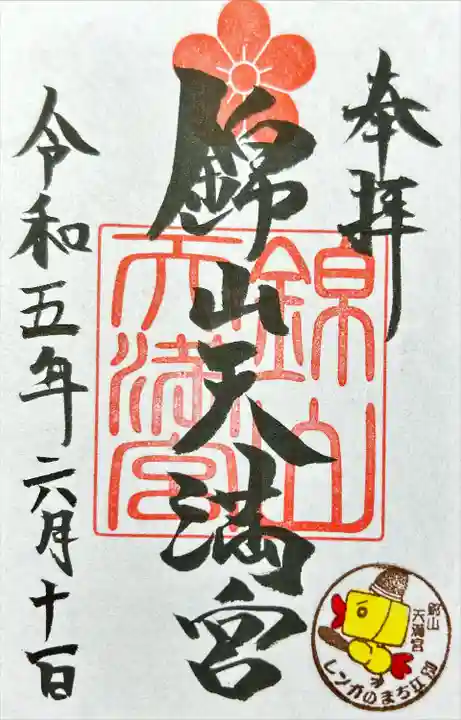 奉拝
錦山天満宮
令和五年六月十一日
錦山
天満宮
錦山
天満宮
レンガのまち江別